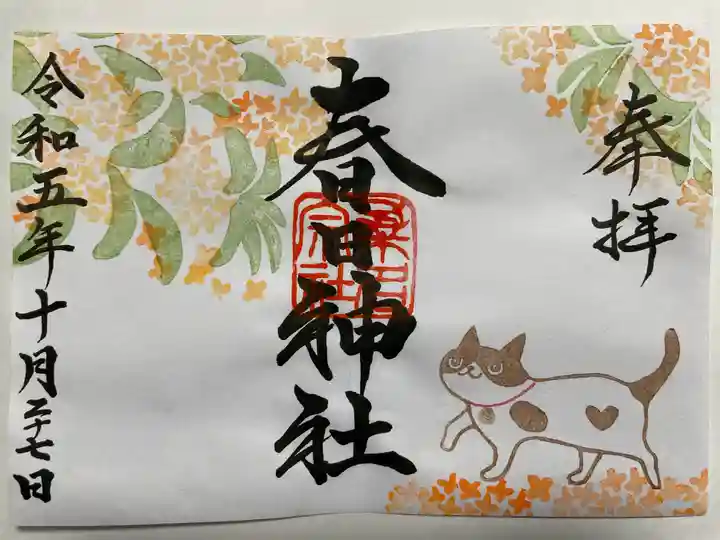 奉拝
春日神社
桑名
宗社
令和五年十月二十七日